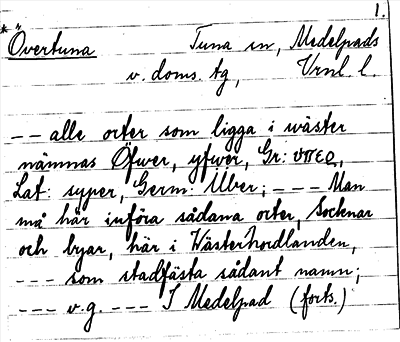 1.
*Övertuna Tuna sn, Medelpads
v. doms. tg, Vrnl. l.
-- alle orter som ligga i wäster
nämnas Öfwer, yfwer, Gr: υπερ,
Lat: syper, Germ: Über; --- Man
må här införa sådana orter, Socknar
och byar, här i Wästerhordlanden,
--- som stadfästa sådant namn;
--- v.g. --- I Medelpad (forts.)